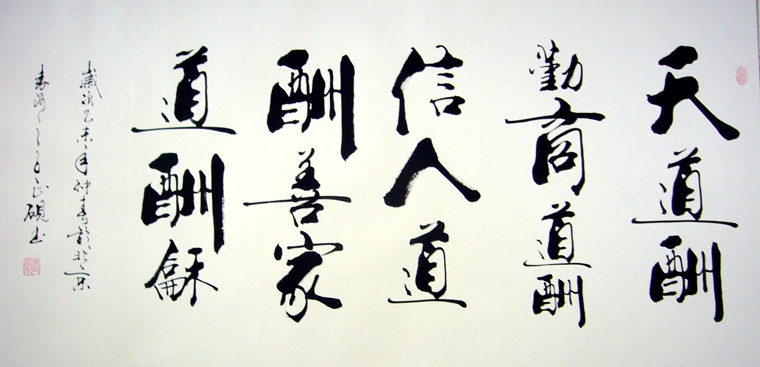 天道酬
勤商道酬
信人道
酬善家
道酬龢
歲次乙未年仲春於京
硯书